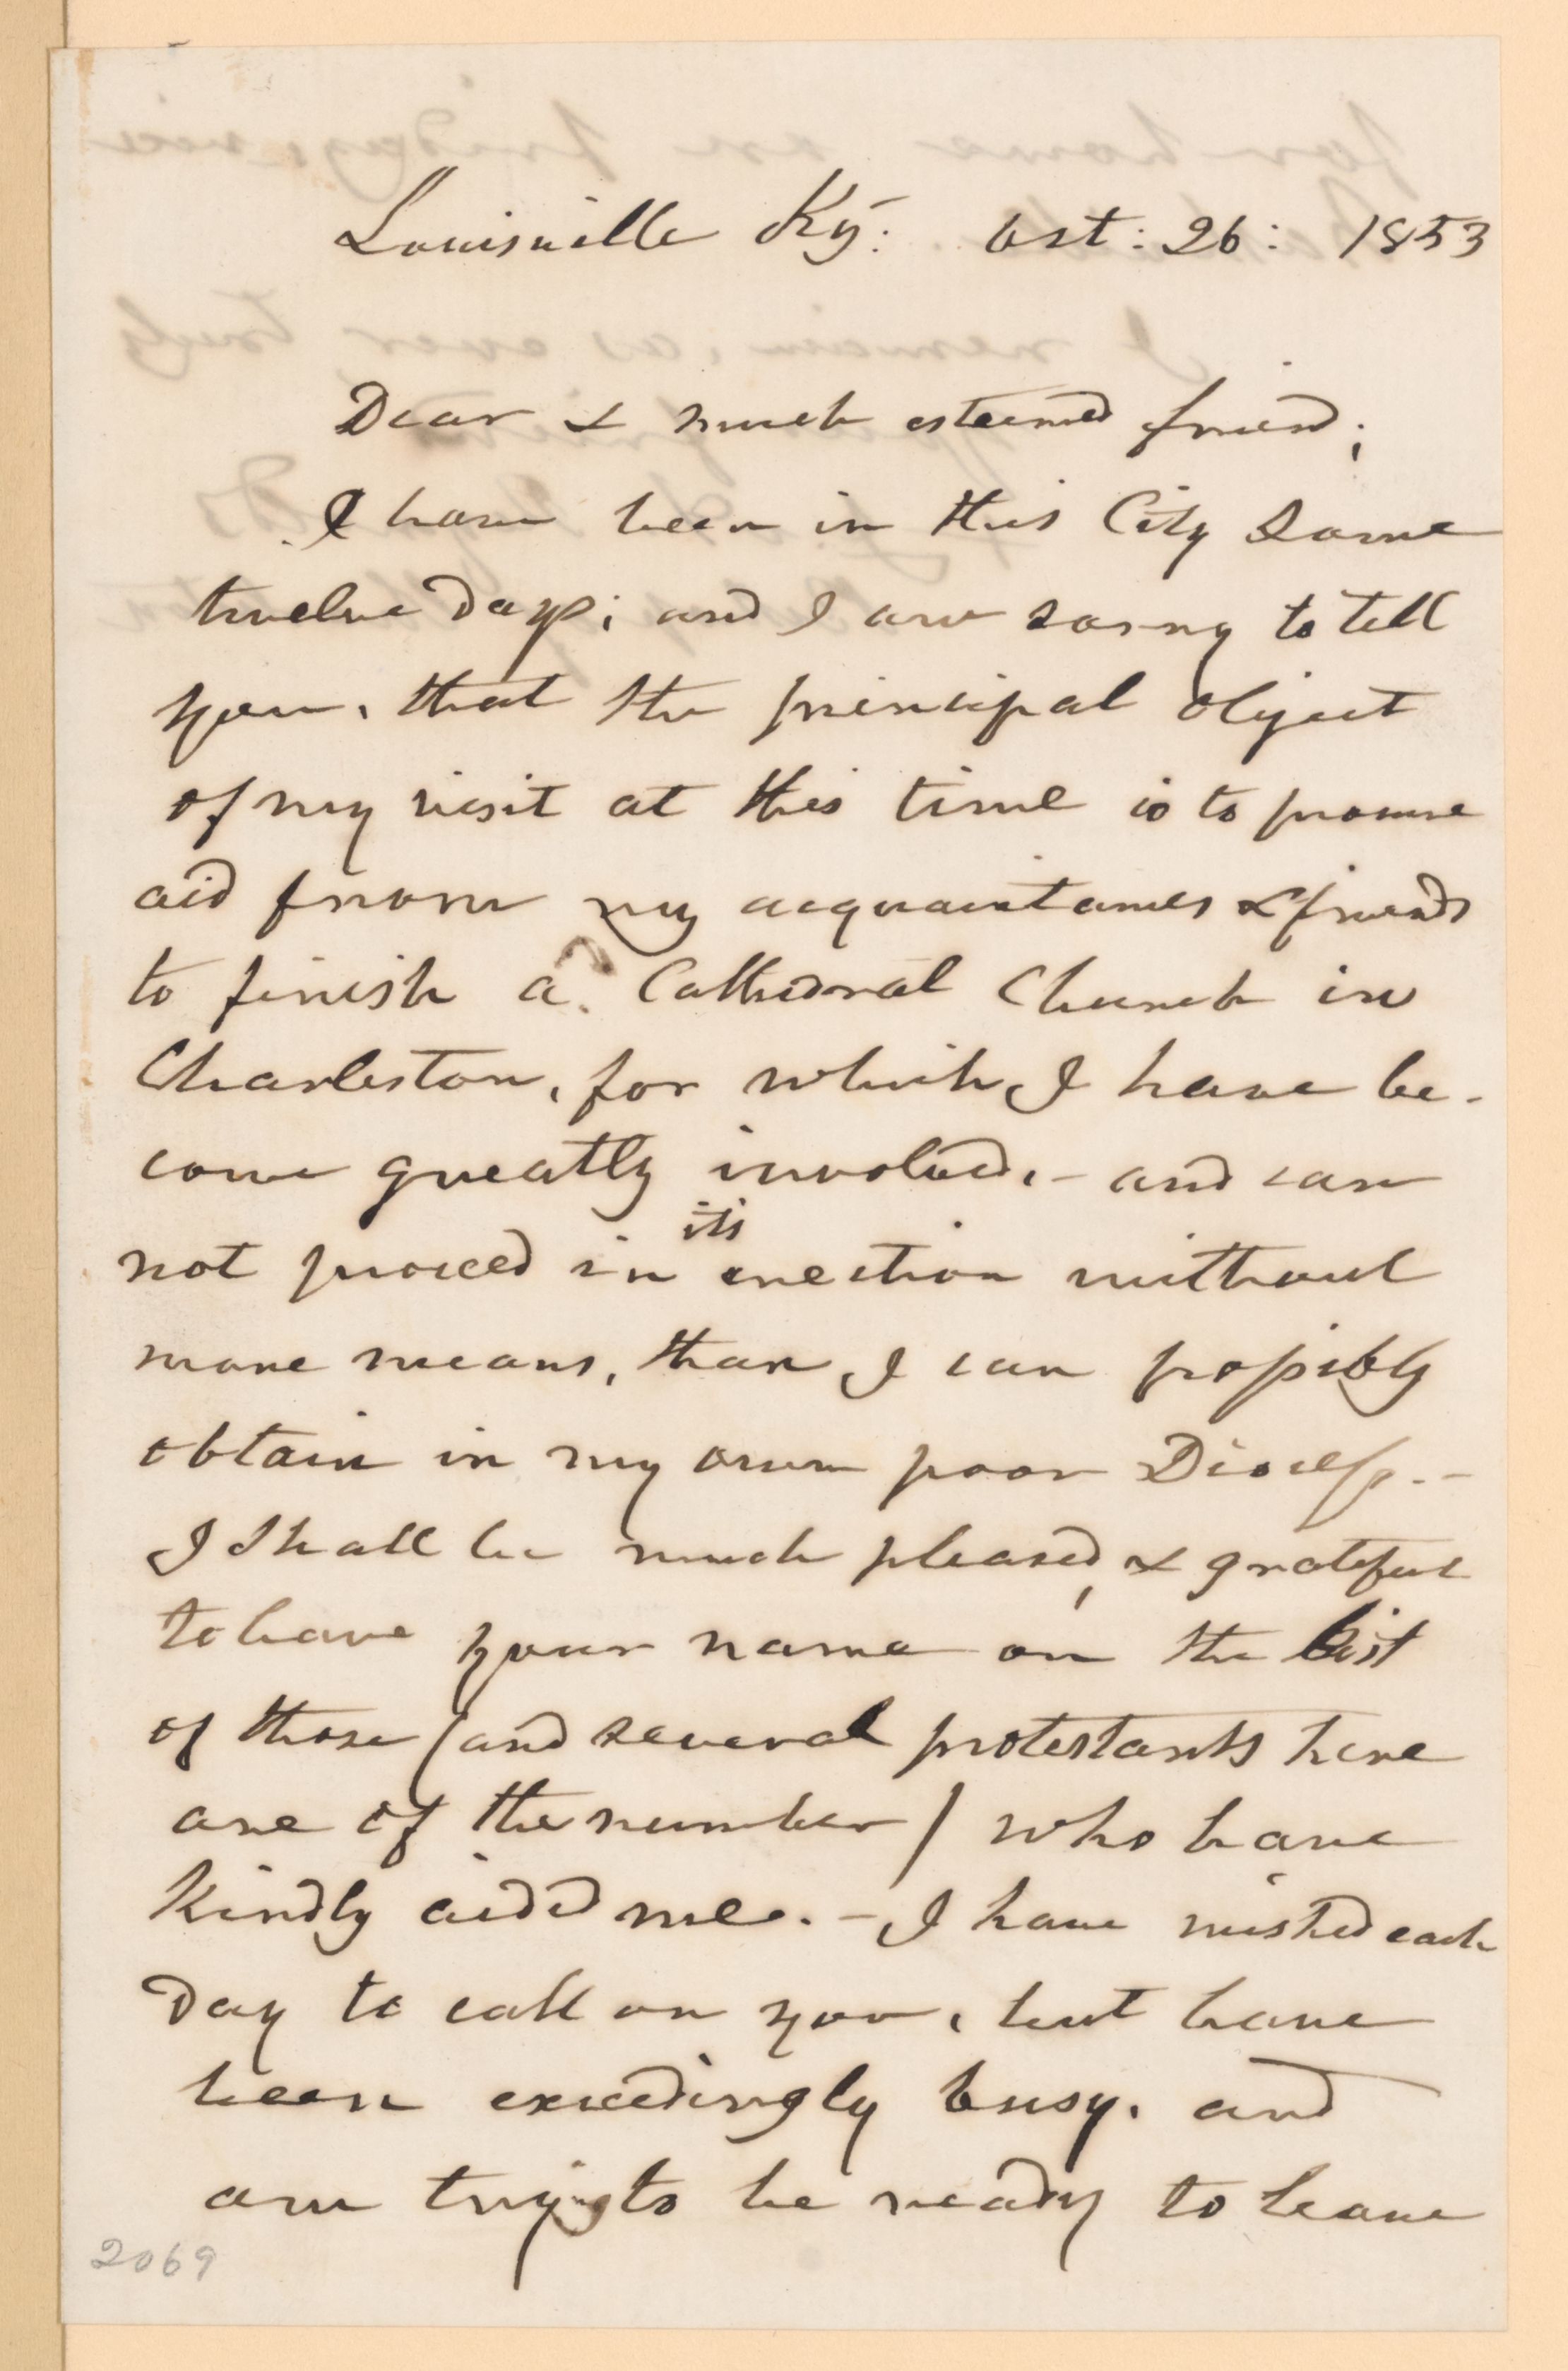 Louisville Ky: Oct: 26: 1853
Dear & much esteemed friend;
I have been in this City some
twelve days; and I am sorry to tell
you, that the principal object
of my visit at this time is to procure
aid from my acquaintances & friends
to finish a Cathedral Church in
Charleston, for which I have be-
come greatly involved, - and can
not proceed in its erection without
more means, than I can possibly
obtain in my own poor Diocess. -
I shall be much pleased, & grateful
to have your name on the list
of those (and several protestants here
are of the number) who have
kindly aided me. - I have wished each
day to call on you, but have
been exceedingly busy. and
am trying to be ready to leave
2069